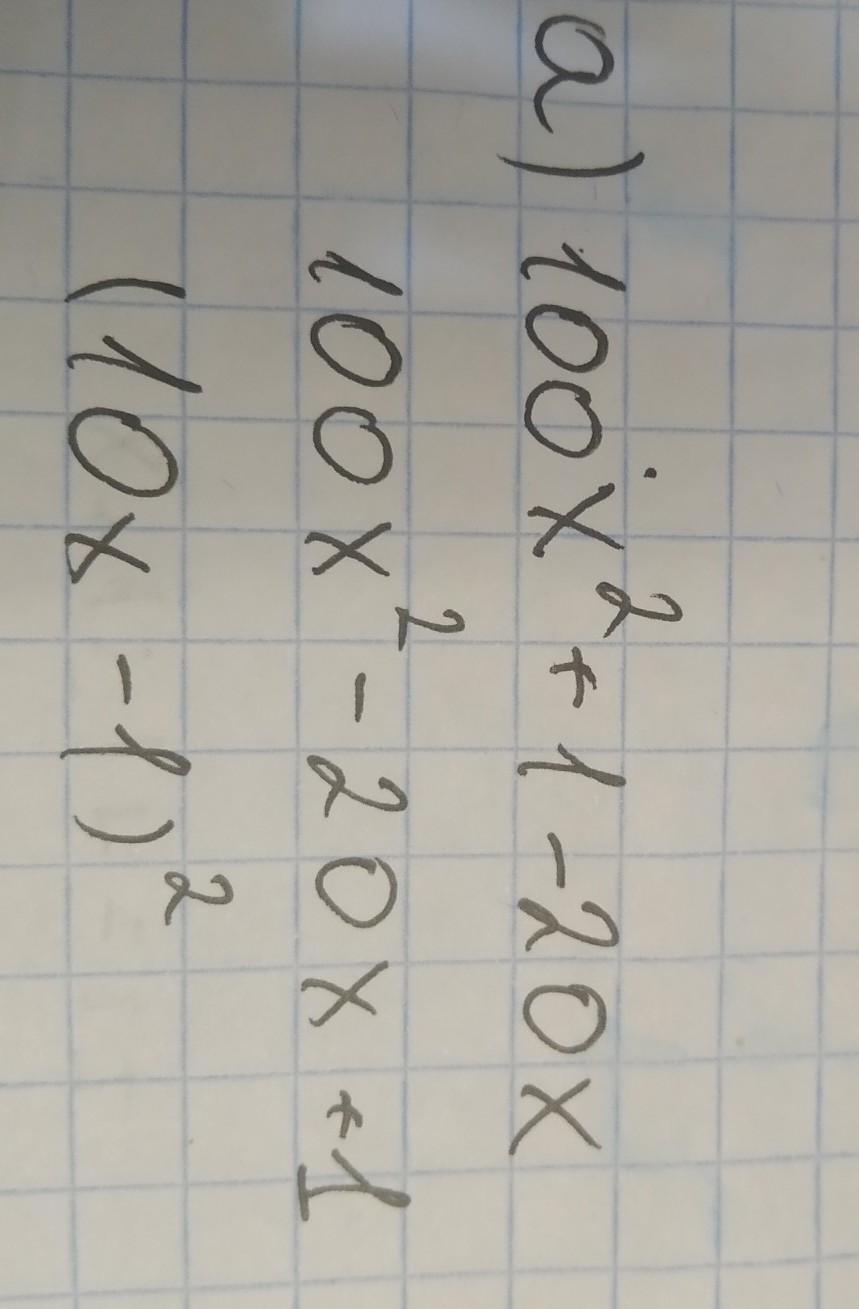 а) 100x² + 1 - 20x
100x² - 20x + 1
(10x - 1)²